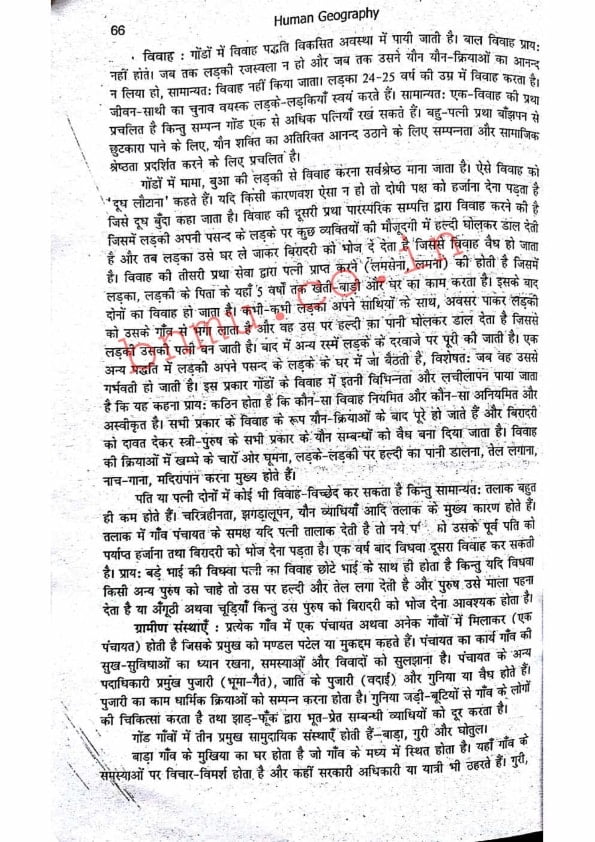 66
Human Geography
विवाह : गोंडों में विवाह पद्धति विकसित अवस्था में पायी जाती है। बाल विवाह प्राय:
नहीं होते। जब तक लड़की रजस्वला न हो और जब तक उसने यौन यौन-क्रियाओं का आनन्द
न लिया हो, सामान्यत: विवाह नहीं किया जाता। लड़का 24-25 वर्ष की उम्र में विवाह करता है।
जीवन-साथी का चुनाव वयस्क लड़के-लड़कियाँ स्वयं करते हैं। सामान्यत: एक-विवाह की प्रथा
प्रचलित है किन्तु सम्पन्न गोंड एक से अधिक पत्नियाँ रख सकते हैं। बहु-पत्नी प्रथा बाँझपन से
छुटकारा पाने के लिए, यौन शक्ति का अतिरिक्त आनन्द उठाने के लिए सम्पन्नता और सामाजिक
श्रेष्ठता प्रदर्शित करने के लिए प्रचलित है।
गोंडों में मामा, बुआ की लड़की से विवाह करना सर्वश्रेष्ठ माना जाता है। ऐसे विवाह को
'दूध लौटाना' कहते हैं। यदि किसी कारणवश ऐसा न हो तो दोषी पक्ष को हर्जाना देना पड़ता है
जिसे दूध बुँदा कहा जाता है। विवाह की दूसरी प्रथा पारस्परिक सम्पत्ति द्वारा विवाह करने की है
जिसमें लड़की अपनी पसन्द के लड़के पर कुछ व्यक्तियों की मौजूदगी में हल्दी घोलकर डाल देती
है और तब लड़का उसे घर ले जाकर बिरादरी को भोज दे देता है जिससे विवाह वैध हो जाता
है। विवाह की तीसरी प्रथा सेवा द्वारा पत्नी प्राप्त करने (लमसेना, लमना) की होती है जिसमें
लड़का, लड़की के पिता के यहाँ 5 वर्षों तक खेती-बाड़ी और घर का काम करता है। इसके बाद
दोनों का विवाह हो जाता है। कभी-कभी लड़का अपने साथियों के साथ, अवसर पाकर लड़की
को उसके गाँव से भगा लाता है और वह उस पर हल्दी का पानी घोलकर डाल देता है जिससे
लड़की उसकी पत्नी बन जाती है। बाद में अन्य रस्में लड़के के दरवाजे पर पूरी की जाती है। एक
अन्य पद्धति में लड़की अपने पसन्द के लड़के के घर में जा बैठती है, विशेषत: जब वह उससे
गर्भवती हो जाती है। इस प्रकार गोंडों के विवाह में इतनी विभिन्नता और लचीलापन पाया जाता
है कि यह कहना प्राय: कठिन होता है कि कौन-सा विवाह नियमित और कौन-सा अनियमित और
अस्वीकृत है। सभी प्रकार के विवाह के रूप यौन-क्रियाओं के बाद पूरे हो जाते हैं और बिरादरी
को दावत देकर स्त्री-पुरुष के सभी प्रकार के यौन सम्बन्धों को वैध बना दिया जाता है। विवाह
की क्रियाओं में खम्भे के चारों ओर घूमना, लड़के-लड़की पर हल्दी का पानी डालना, तेल लगाना,
नाच-गाना, मदिरापान करना मुख्य होते हैं।
पति या पत्नी दोनों में कोई भी विवाह-विच्छेद कर सकता है किन्तु सामान्यत: तलाक बहुत
ही कम होते हैं। चरित्रहीनता, झगड़ालूपन, यौन व्याधियाँ आदि तलाक के मुख्य कारण होते हैं।
तलाक में गाँव पंचायत के समक्ष यदि पत्नी तालाक देती है तो नये को उसके पूर्व पति को
पर्याप्त हर्जाना तथा बिरादरी को भोज देना पड़ता है। एक वर्ष बाद विधवा दूसरा विवाह कर सकती
है। प्राय: बड़े भाई की विधवा पत्नी का विवाह छोटे भाई के साथ ही होता है किन्तु यदि विधवा
किसी अन्य पुरुष को चाहे तो उस पर हल्दी और तेल लगा देती है और पुरुष उसे माला पहना
देता है या अँगूठी अथवा चूड़ियाँ किन्तु उस पुरुष को बिरादरी को भोज देना आवश्यक होता है।
ग्रामीण संस्थाएँ : प्रत्येक गाँव में एक पंचायत अथवा अनेक गाँवों में मिलाकर (एक
पंचायत) होती है जिसके प्रमुख को मण्डल पटेल या मुकद्दम कहते हैं। पंचायत का कार्य गाँव की
सुख-सुविधाओं का ध्यान रखना, समस्याओं और विवादों को सुलझाना है। पंचायत के अन्य
पदाधिकारी प्रमुख पुजारी (भूमा-गैतं), जाति के पुजारी (वदाई) और गुनिया या वैध होते हैं।
पुजारी का काम धार्मिक क्रियाओं को सम्पन्न करना होता है। गुनिया जड़ी-बूटियों से गाँव के लोगों
की चिकित्सा करता है तथा झाड़-फूँक द्वारा भूत-प्रेत सम्बन्धी व्याधियों को दूर करता है।
गोंड गाँवों में तीन प्रमुख सामुदायिक संस्थाएँ होती हैं–बाड़ा, गुरी और घोतुल।
बाड़ा गाँव के मुखिया का घर होता है जो गाँव के मध्य में स्थित होता है। यहाँ गाँव के
समस्याओं पर विचार-विमर्श होता है और कहीं सरकारी अधिकारी या यात्री भी ठहरते हैं। गुरी,
bnmu.co.in